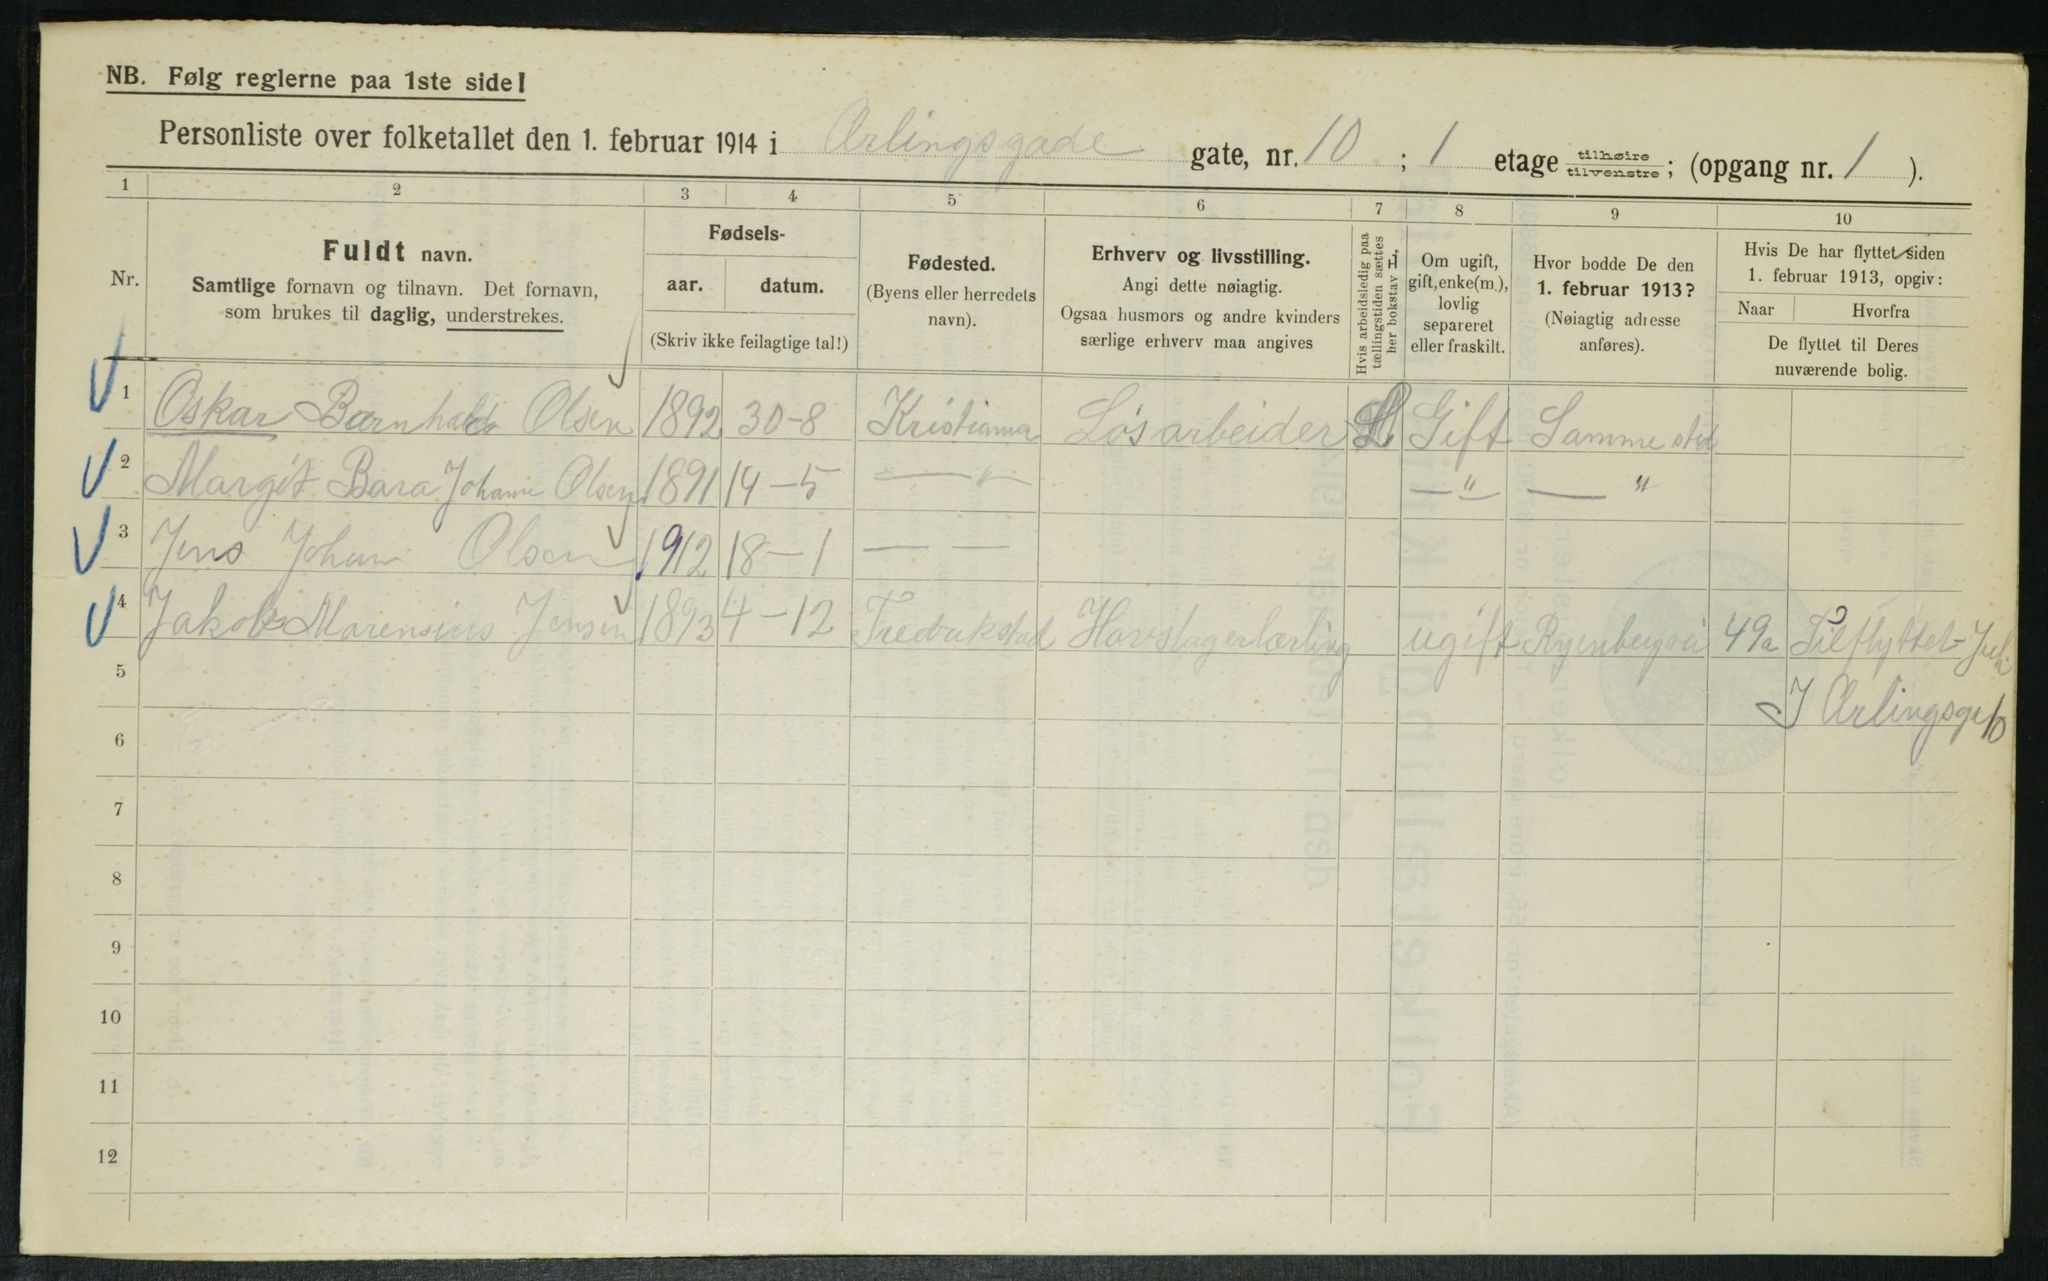 NB. Følg reglerne paa 1ste side!
Personliste over folketallet den 1. februar 1914 i Arlingsgade gate, nr. 10 ; 1 etage tilhøire tilvenstre ; (opgang nr. 1 ).
1 2 3 4 5 6 7 8 9 10
Nr.
Fuldt navn.
Samtlige fornavn og tilnavn. Det fornavn,
som brukes til daglig, understrekes.
Fødsels-
aar. datum.
(Skriv ikke feilagtige tal!)
Fødested.
(Byens eller herredets
navn).
Erhverv og livsstilling.
Angi dette nøiagtig.
Ogsaa husmors og andre kvinders
særlige erhverv maa angives
Hvis arbeidsledig paa
tællingstiden sættes
her bokstav L.
Om ugift,
gift, enke(m.),
lovlig
separeret
eller fraskilt.
Hvor bodde De den
1. februar 1913?
(Nøiagtig adresse
anføres).
Hvis De har flyttet siden
1. februar 1913, opgiv:
Naar Hvorfra
De flyttet til Deres
nuværende bolig.
1 Oskar Olsen 1892 30-8 Kristiania Løsarbeider L Gift Samme sted
2 Margit Bara Johanne Olsen 1891 14-5 — " — — " — — "
3 Jens Johan Olsen 1912 18-1 — —
4 Jakob Marensius Jensen 1893 4-12 Fredrikstad Hovslagerlærling ugift 49a Tilflyttet
5 I Arlingsgt 10
6
7
8
9
10
11
12